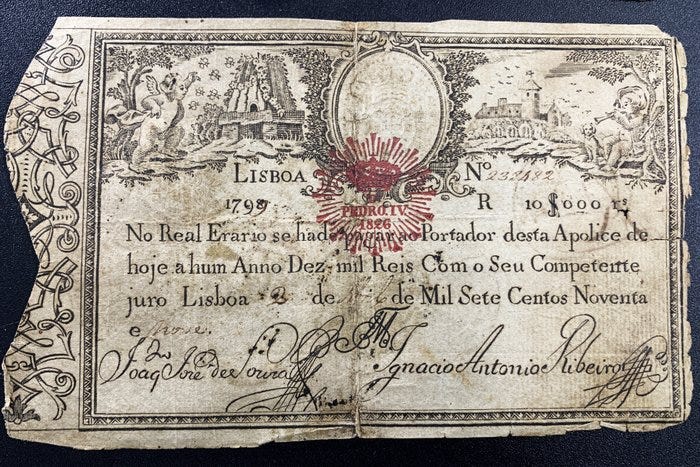 LISBOA Nº 232482
1799 R 10$000 rs
PEDRO. IV.
1826
No Real Erario se hade pagar ao Portador desta Apolice de
hoje a hum Anno Dez mil Reis Com o Seu Competente
juro Lisboa 2 de de Mil Sete Centos Noventa
e nove.
Joaq Joze de Souza Ignacio Antonio Ribeiro